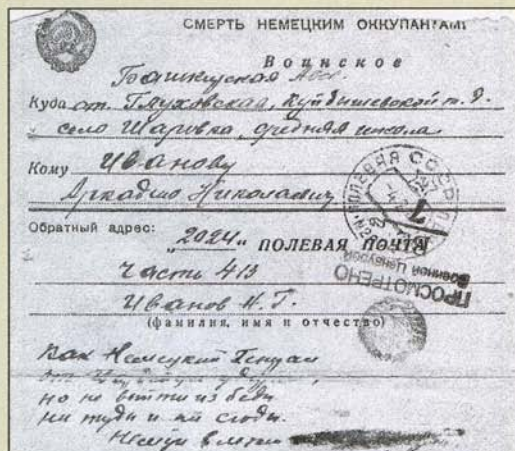 СМЕРТЬ НЕМЕЦКИМ ОККУПАНТАМ
Воинское
Башкирская
Куда ст. Глуховская, Куйбышевской ж. д.
село Шаровка, средняя школа
Кому Иванову
Аркадию Николаевич
Обратный адрес:
„2024“ ПОЛЕВАЯ ПОЧТА
Часть 413
Иванов Н. Г.
(фамилия, имя и отчество)
ПОЛЕВАЯ СССР
ПРОСМОТРЕНО
Военной Цензурой
Как Немецкий Генерал
но не выйти из беды
ни туды и ни сюды.